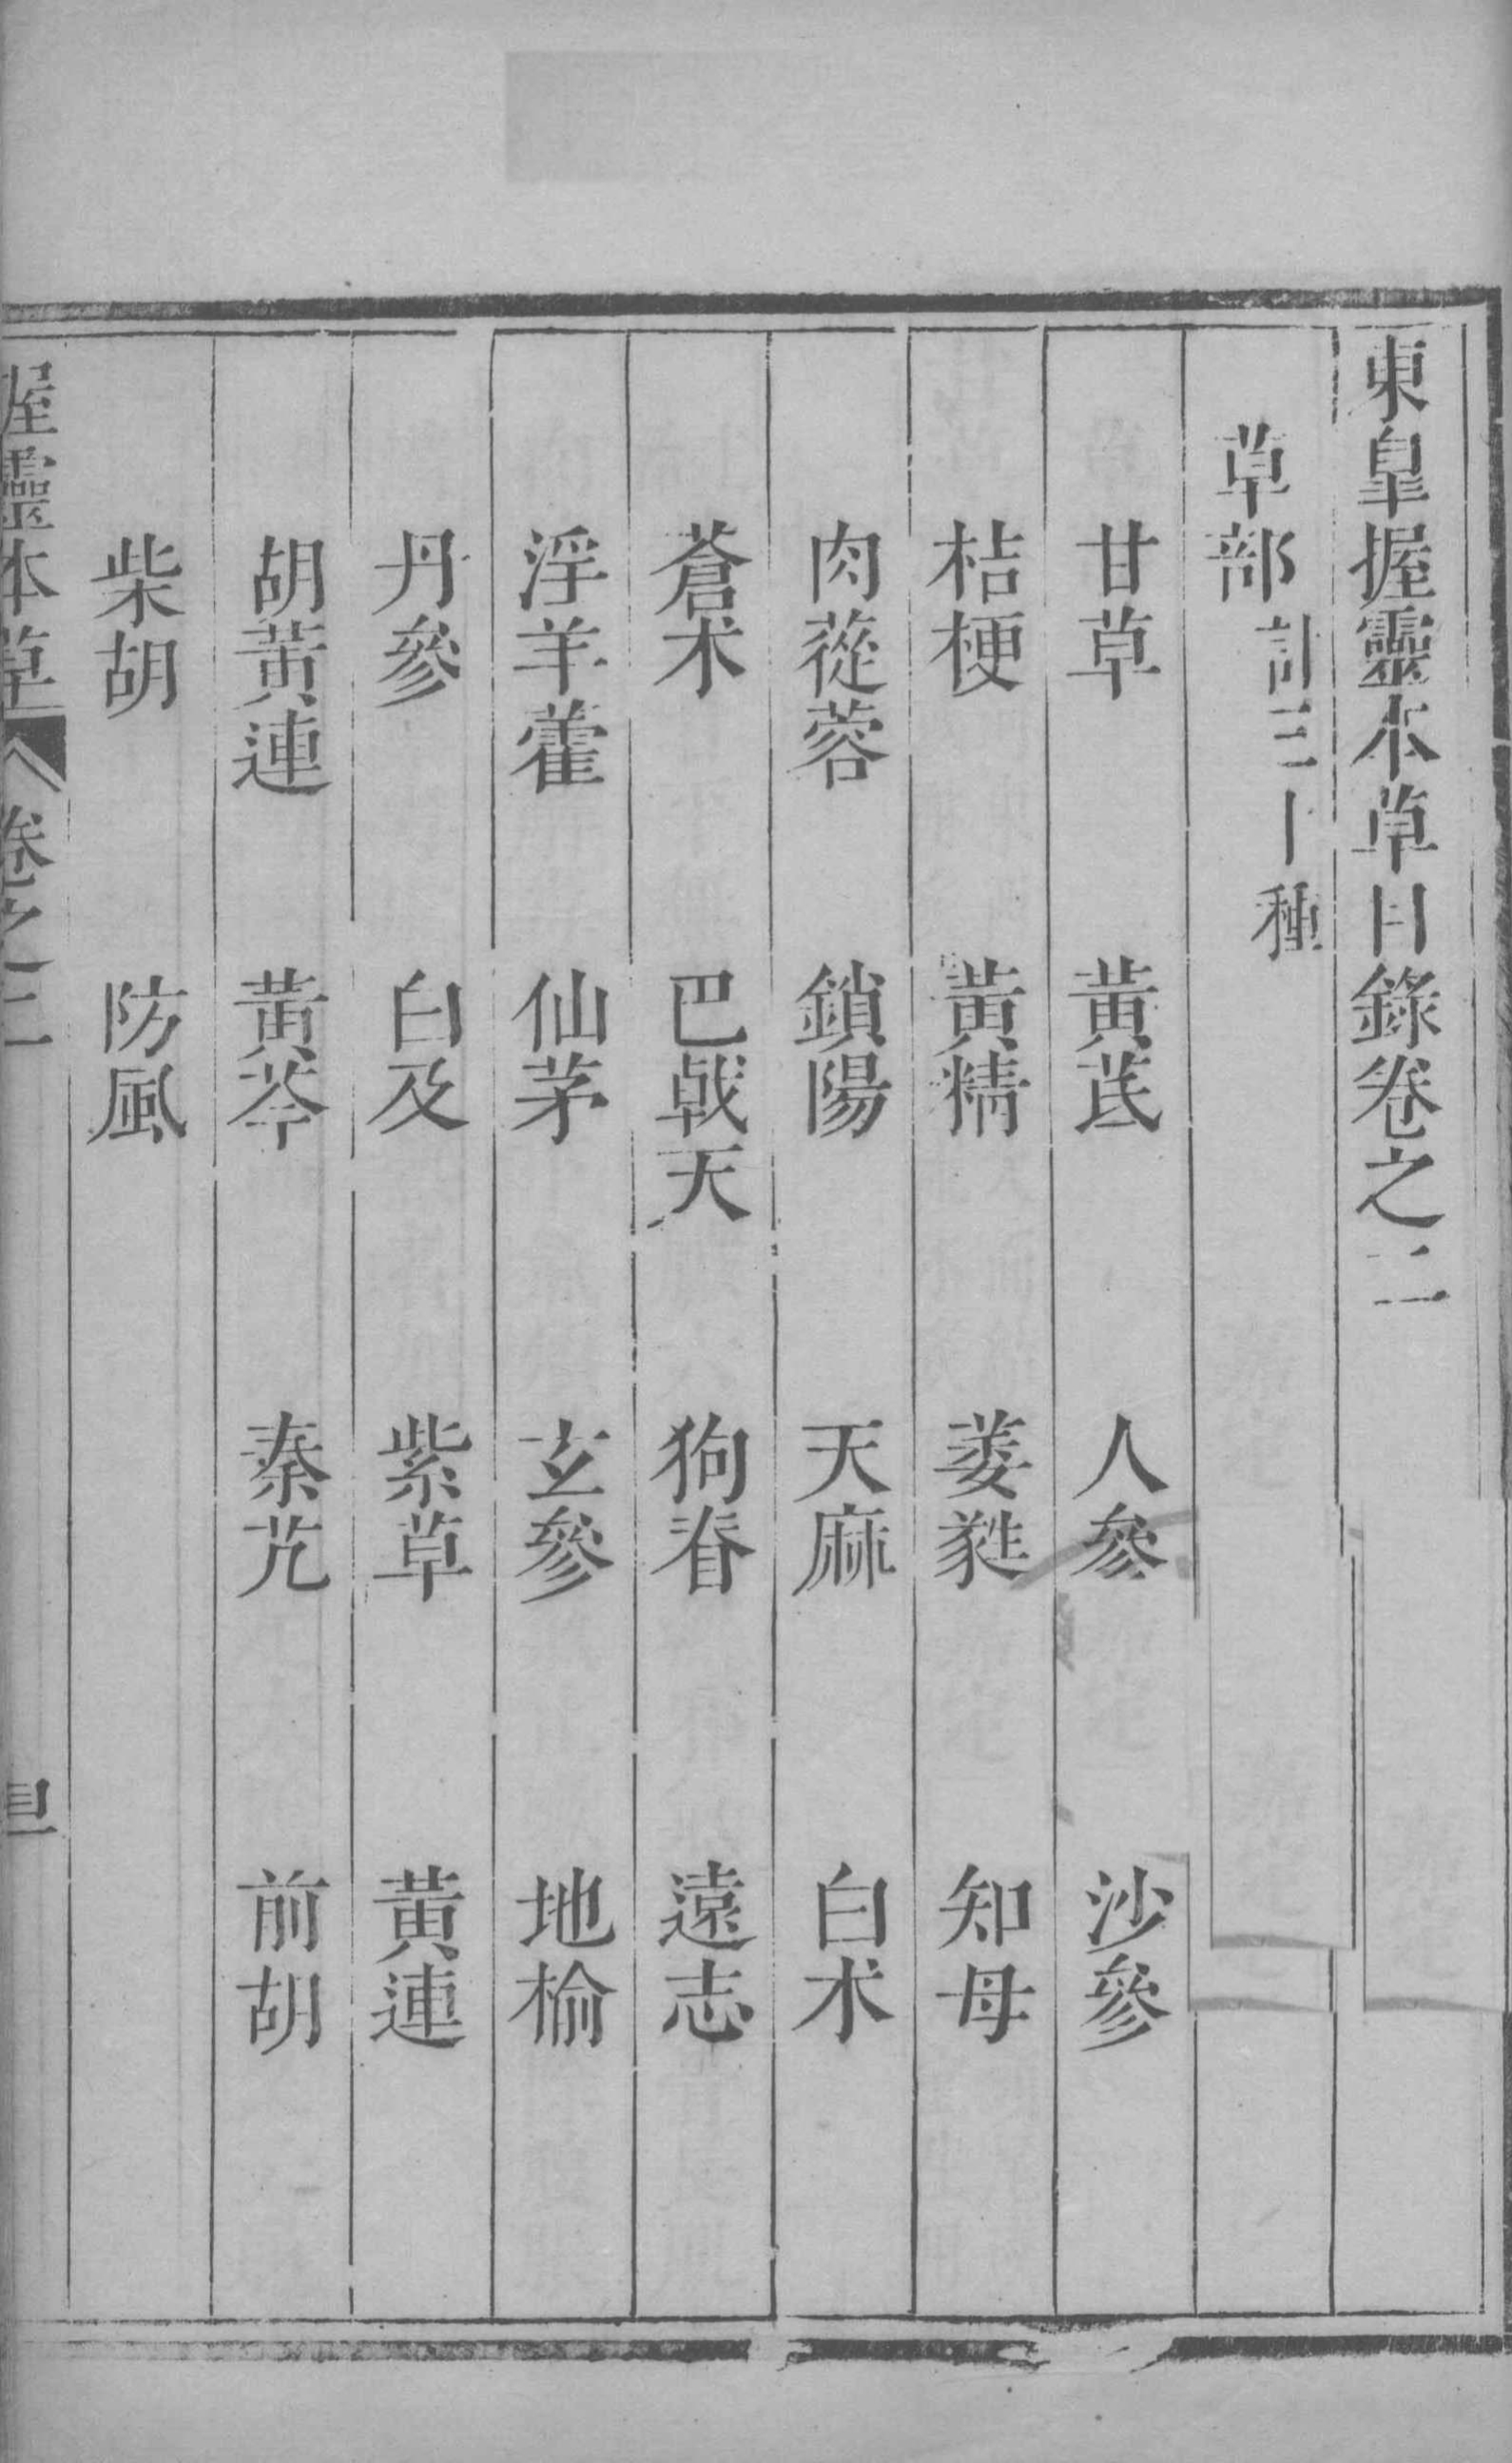 東皐握靈本草目錄卷之二
草部計三十種
甘草　黄茋　人參　沙參
桔梗　黃精　萎蕤　知母
肉蓯蓉　鎖陽　天麻　白术
蒼术　巴戟天　狗脊　遠志
淫羊藿　仙茅　玄參　地榆
丹參　白及　紫草　黃連
胡黃連　黃芩　秦艽　前胡
柴胡　防風
握靈本草　卷之二